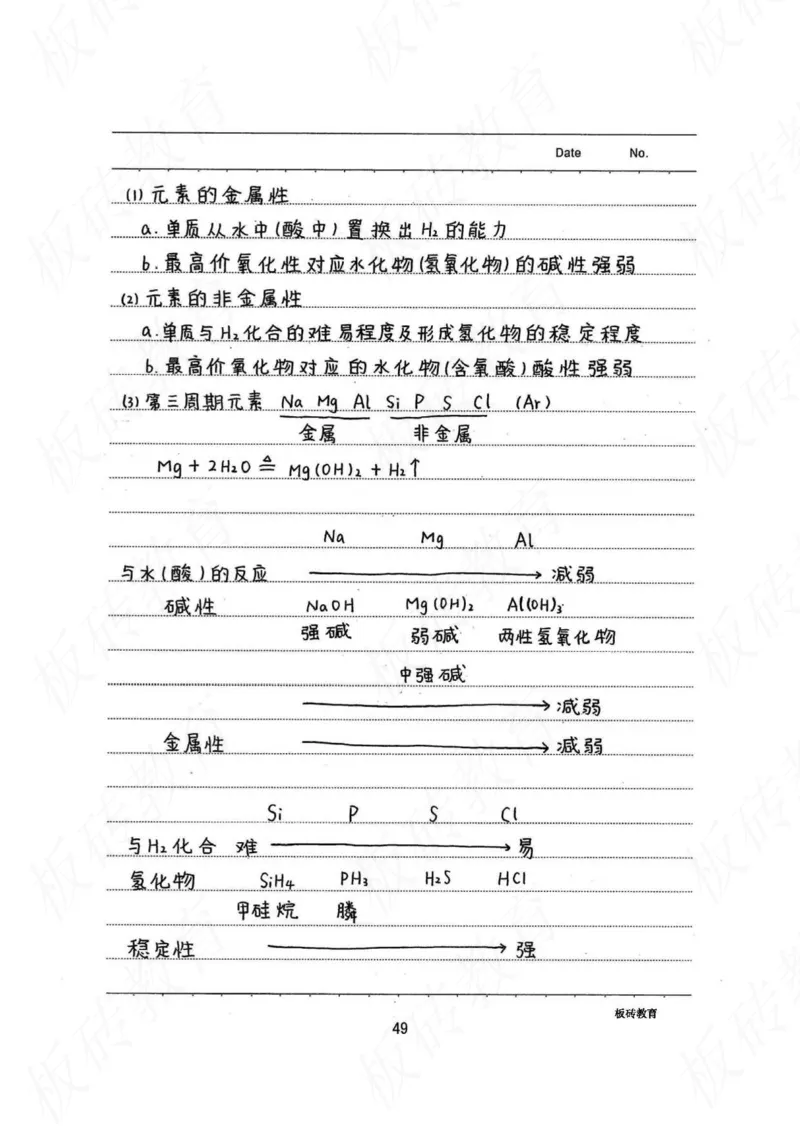 Date No.
(1) 元素的金属性
a. 单质从水中(酸中)置换出H₂的能力
b. 最高价氧化性对应水化物(氢氧化物)的碱性强弱
(2) 元素的非金属性
a. 单质与H₂化合的难易程度及形成氢化物的稳定程度
b. 最高价氧化物对应的水化物(含氧酸)酸性强弱
(3) 第三周期元素 Na Mg Al Si P S Cl (Ar)
金属 非金属
Mg + 2H₂O ≜ Mg(OH)₂ + H₂↑
Na Mg Al
与水(酸)的反应 → 减弱
碱性 NaOH Mg(OH)₂ Al(OH)₃
强碱 弱碱 两性氢氧化物
中强碱
→ 减弱
金属性 → 减弱
Si P S Cl
与H₂化合 难 → 易
氢化物 SiH₄ PH₃ H₂S HCl
甲硅烷 膦
稳定性 → 强
板砖教育
49